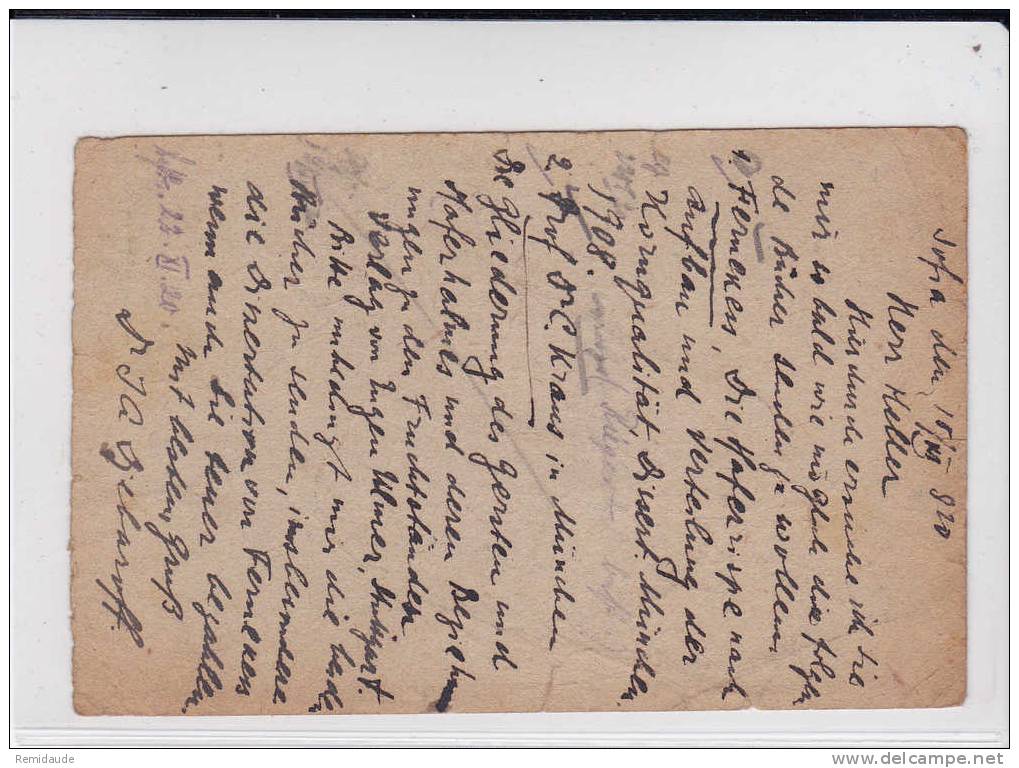 Sofia den 15/XII 920
Herr Heller
Hierdurch ersuche ich Sie
mir so bald wie möglich die folgen
de Bücher senden zu wollen.
1) Fermenes, Die Haferrispe nach
Aufbau und Verteilung der
Kornqualität, Dissert. München
1908.
2. Prof Dr C. Kraus in München
Die Gliederung des Gersten und
Haferhalmes und deren Bezieh
ungen zu den Fruchtständen
Verlag von Eugen Ulmer, Stuttgart.
Bitte unbedingt mir die beide
Bücher zu senden, insbesondere
die Dissertation von Fermenes
wenn auch Sie teuer bezahlen.
Mit besten Gruß
Dr Iv.
22. XI. 20.
Remidaude
www.delcampe.net